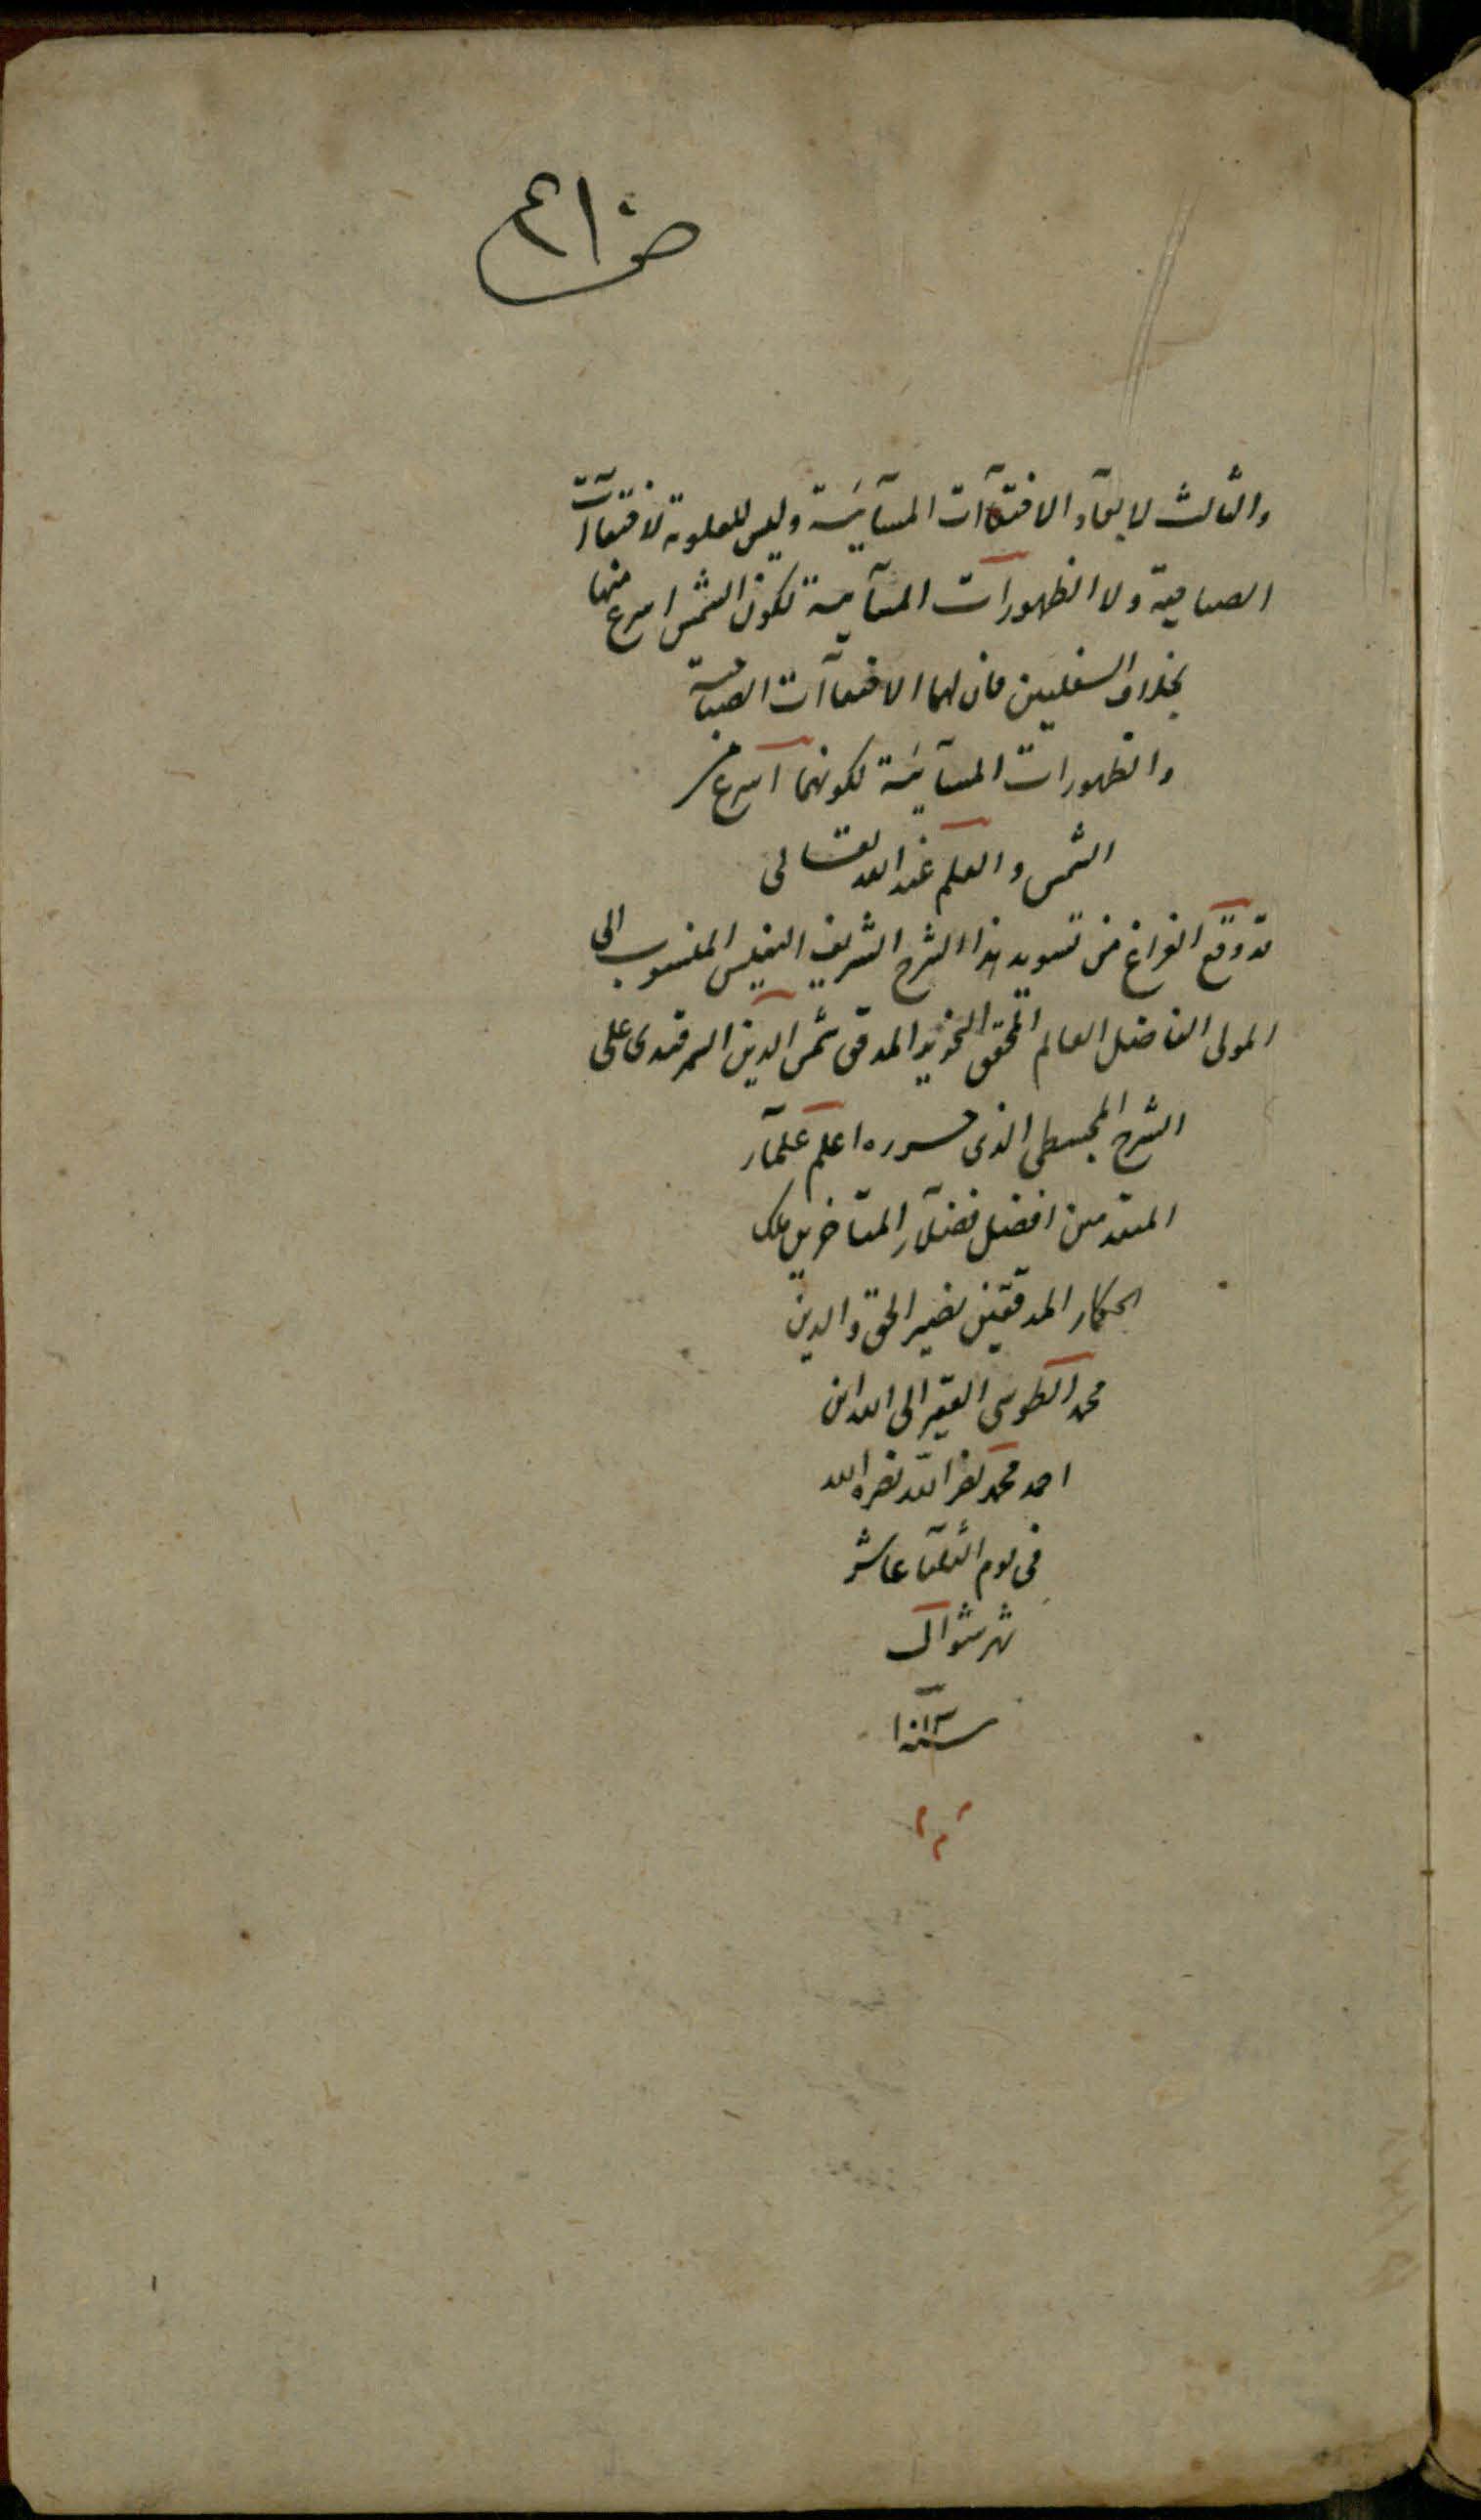 ص ٤١٠
والثالث لابعاد الاختفاآت المسآئية وليس للعلوية الاختفاآت
الصباحية ولا الظهورات المسآئية لكون الشمس اسرع منها
بخلاف السفليين فان لهما الاختفاآت الصباحية
والظهورات المسآئية لكونهما اسرع من
الشمس والعلم عند الله تعالى
قد وقع الفراغ من تسويد هذا الشرح الشريف النفيس المنسوب الى
المولى الفاضل العالم المحقق النحرير المدقق شمس الدين السمرقندى على
الشرح المجسطى الذى حرره اعلم علمآء
المتقدمين افضل فضلآء المتأخرين ملك
الحكماء المدققين نصير الحق والدين
محمد الطوسى الفقير الى الله ابن
احمد محمد نصر الله نصره الله
فى يوم الثلثا عاشر
شهر شوال
سنة